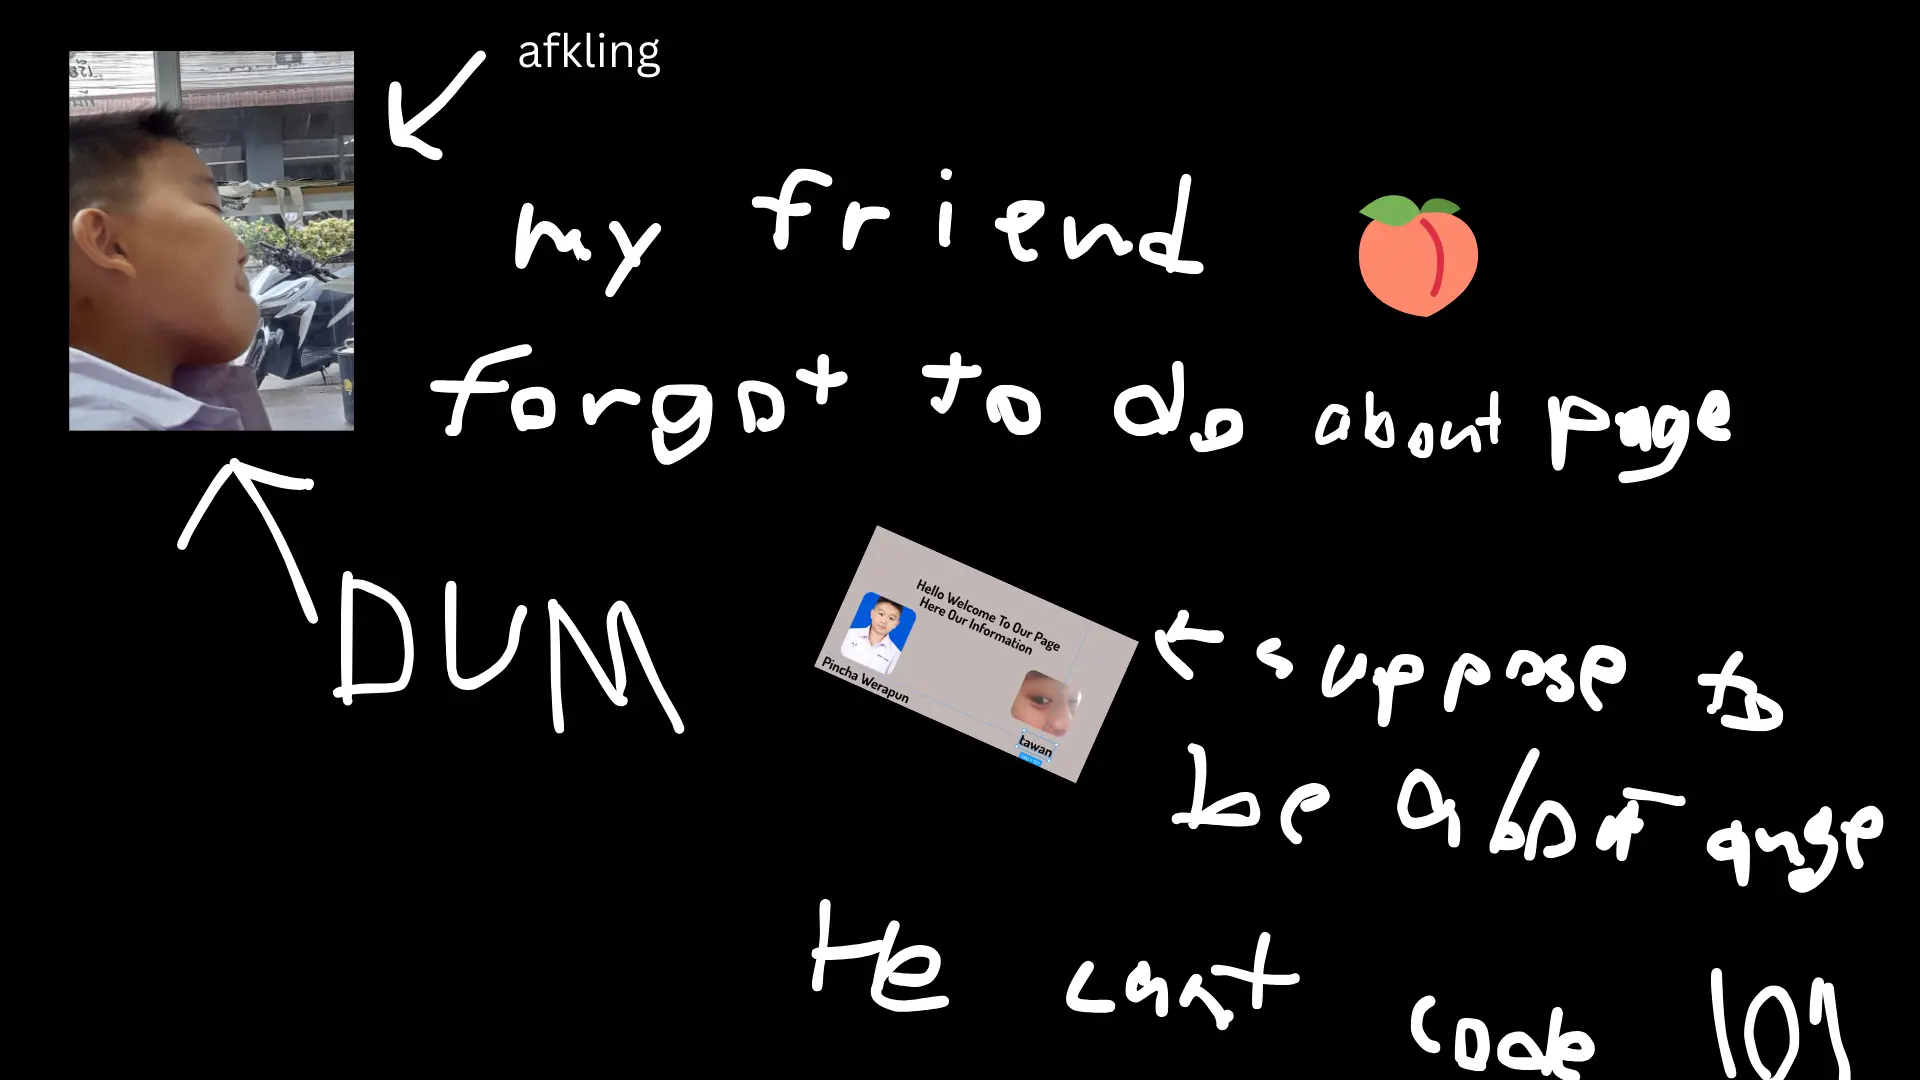 afkling
my friend
forgot to do about page
DUM
Hello Welcome To Our Page
Here Our Information
Pincha Werapun
tawan
suppose to
be about
He cant code lol